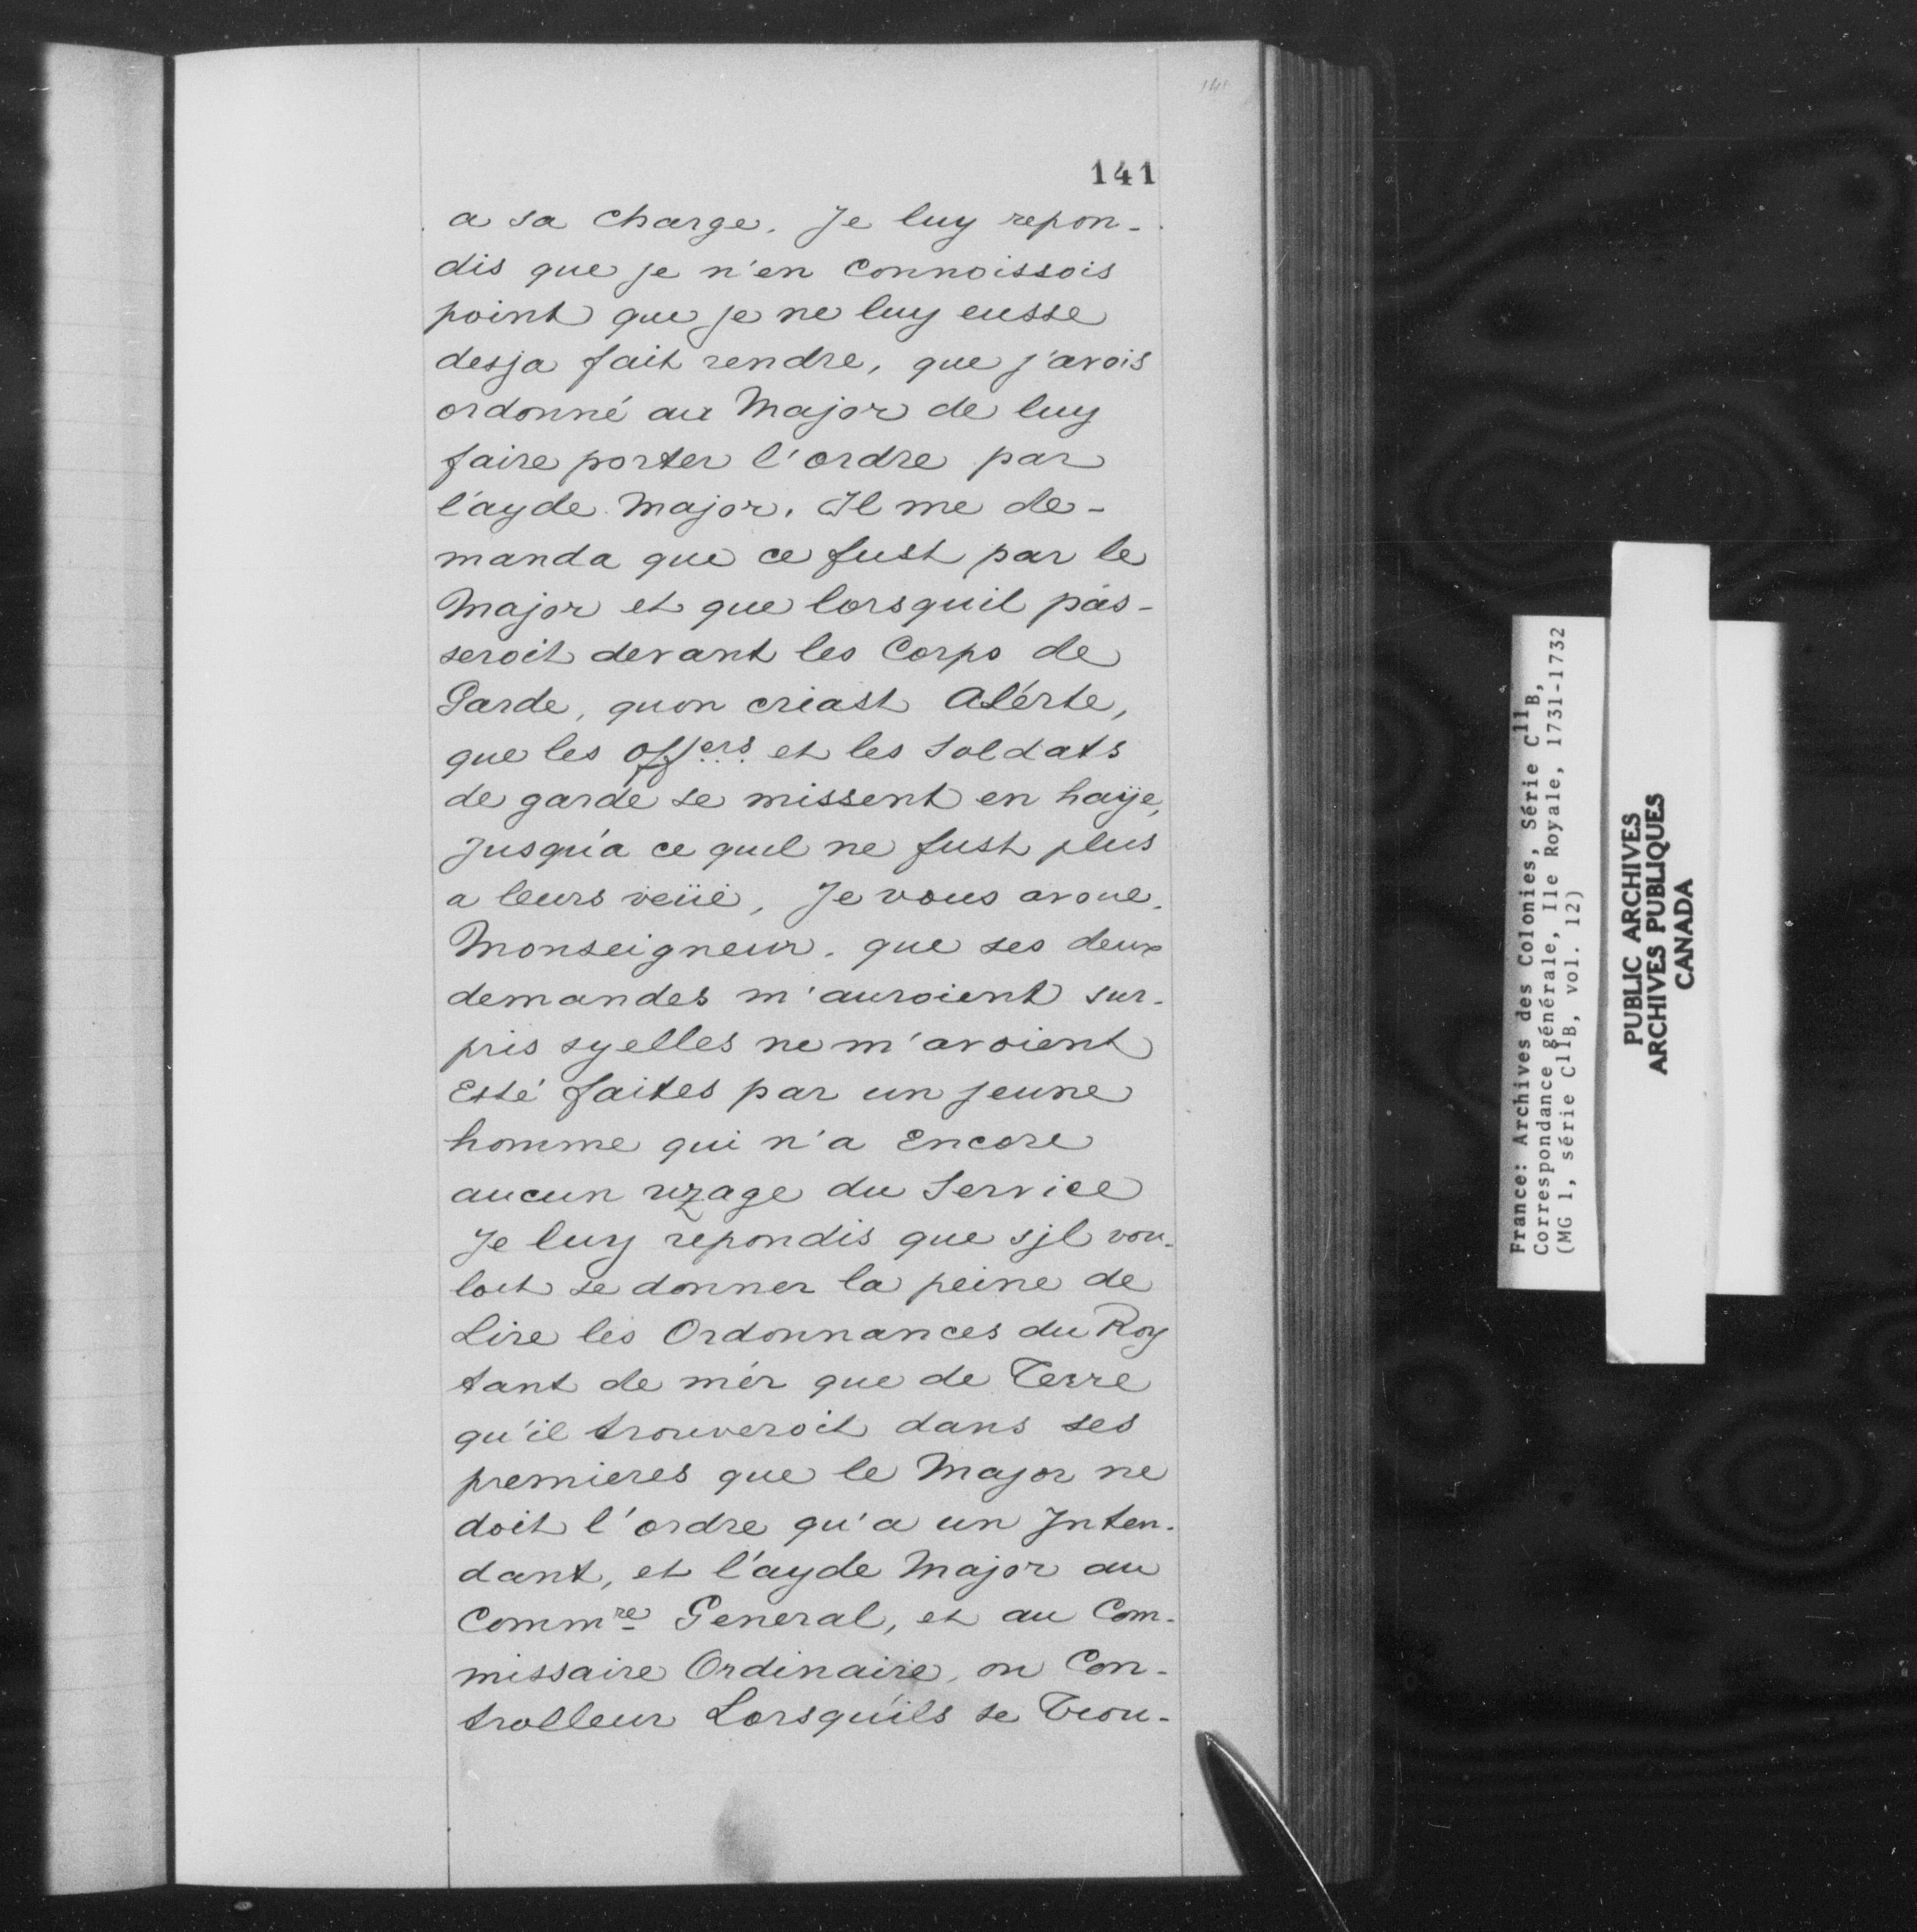 141
141
a sa charge. Je luy repon-
dis que je n'en Connoissois
point que je ne luy eusse
desja fait rendre, que j'avois
ordonné au Major de luy
faire porter l'ordre par
l'ayde Major. Il me de-
manda que ce fust par le
Major et que lorsquil pas-
seroit devant les Corps de
Garde, quon criast Alérte,
que les Offers et les Soldats
de garde se missent en haÿe,
Jusqu'a ce quil ne fust plus
a leurs veüe, Je vous avoue.
Monseigneur. que ses deux
demandes m'auroient sur-
pris syelles ne m'avoient
Esté faites par un jeune
homme qui n'a Encore
aucun uzage du Service
Je luy repondis que sjl vou-
loit se donner la peine de
Lire les Ordonnances du Roy
tant de mér que de Terre
qu'il trouveroit dans ses
premieres que le Major ne
doit l'ordre qu'a un Inten-
dant, et l'ayde Major au
Commre General, et au Com-
missaire Ordinaire, ou Con-
trolleur Lorsqu'ils se Trou-
France: Archives des Colonies, Série C11B,
Correspondance générale, Ile Royale, 1731-1732
(MG 1, série C11B, vol. 12)
PUBLIC ARCHIVES
ARCHIVES PUBLIQUES
CANADA